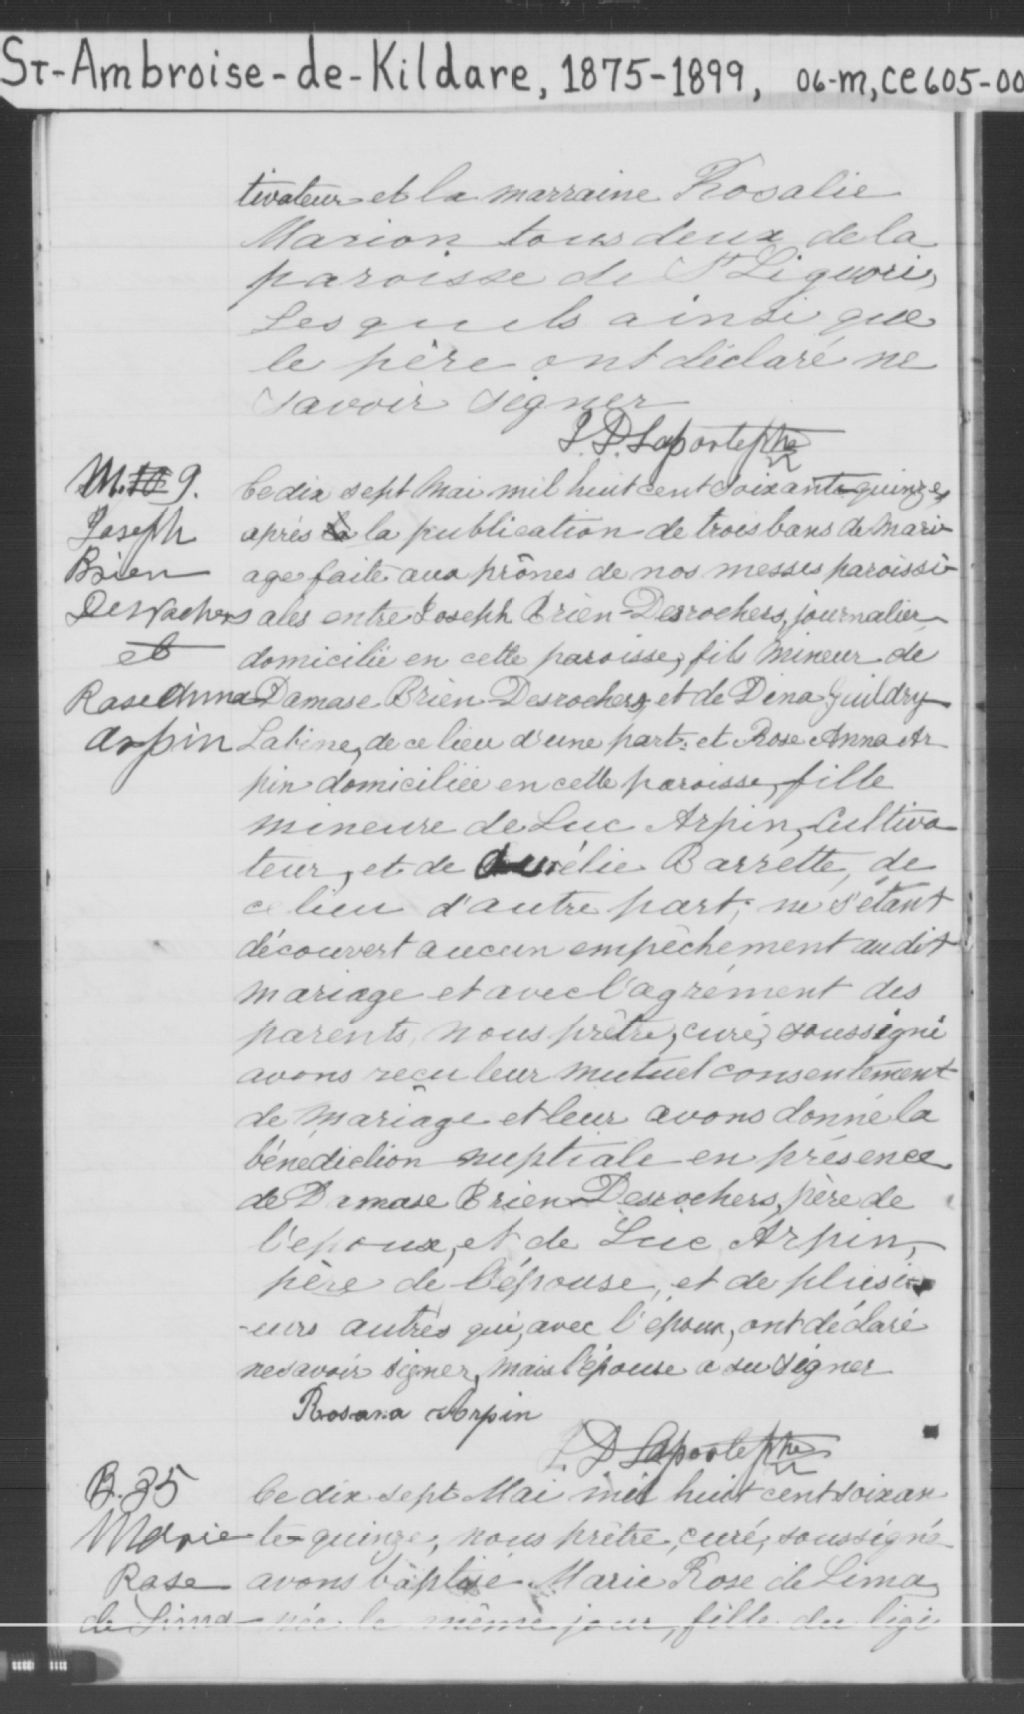 St-Ambroise-de-Kildare, 1875-1899, 06-m, CE605-00
tivateur et la marraine Rosalie
Marion tous deux de la
paroisse de St Liguori,
Lesquels ainsi que
le père ont déclaré ne
savoir signer
J. D. Laporte ptre
M. 10 9.
Joseph
Brien
Desrochers
et
Rose Anna
Arpin
Ce dix sept Mai mil huit cent soixante-quinze,
après la la publication de trois bans de Mari-
age faite aux prônes de nos messes paroissi-
ales entre Joseph Brien-Desrochers, journalier
domicilié en cette paroisse, fils mineur de
Damase Brien-Desrochers et de Dina Guildry
Labine, de ce lieu d'une part; et Rose Anna Ar
pin domiciliée en cette paroisse, fille
mineure de Luc Arpin, Cultiva
teur, et de Aurélie Barrette, de
ce lieu d'autre part; ne s'étant
découvert aucun empêchement au dit
mariage et avec l'agrément des
parents, nous prêtre, curé, soussigné
avons reçu leur mutuel consentement
de mariage et leur avons donné la
bénédiction nuptiale en présence
de Damase Brien-Desrochers, père de
l'epoux, et de Luc Arpin,
père de l'épouse, et de plusi
-eurs autres qui, avec l'époux, ont déclaré
ne savoir signer, mais l'épouse a su signer
Rosana Arpin
J. D. Laporte ptre
B. 35
Marie
Rose
de Lima
Ce dix sept Mai mil huit cent soixan
te-quinze, nous prêtre, curé, soussigné
avons baptisé Marie Rose de Lima,
née le même jour, fille du légi